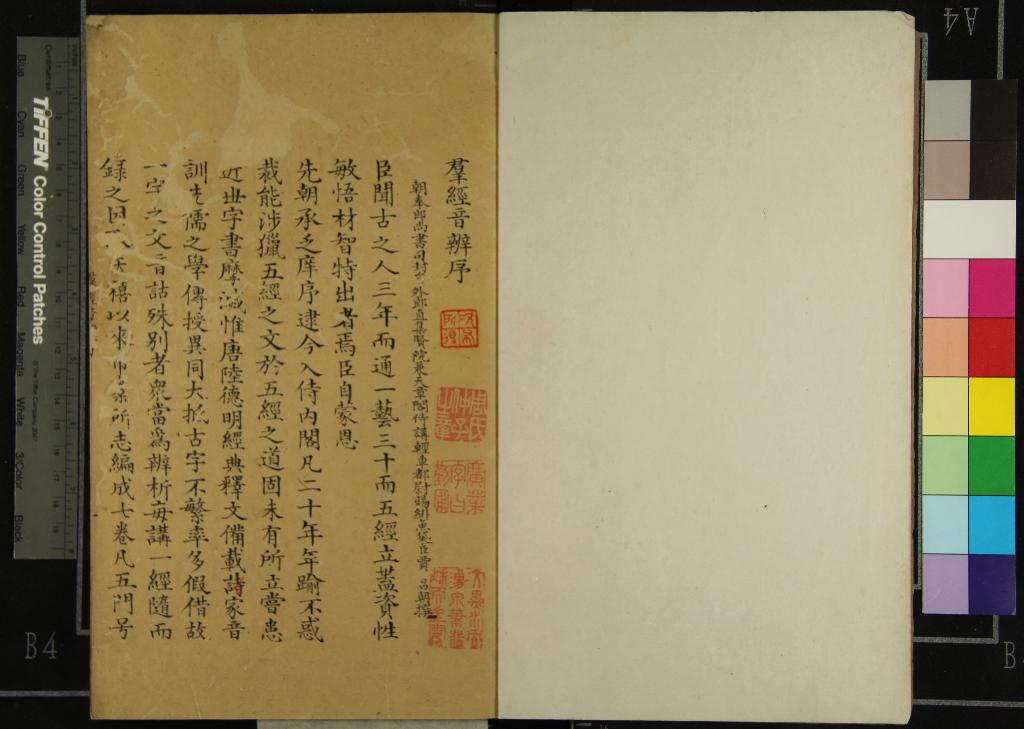 羣經音辨序
朝奉郎尚書司封員外郎直集賢院兼天章閣侍講輕車都尉賜緋魚袋臣賈 昌朝撰
臣聞古之人三年而通一藝三十而五經立蓋資性
敏悟材智特出者焉臣自蒙恩
先朝承乏庠序逮今入侍內閣凡二十年年踰不惑
裁能涉獵五經之文於五經之道固未有所立嘗患
近世字書摩滅惟唐陸德明經典釋文備載諸家音
訓先儒之學傳授異同大抵古字不繁率多假借故
一字之文音詁殊別者衆當爲辨析每講一經隨而
錄之因 天禧以來 所志編成七卷凡五門号
周氏
仲子
TIFFEN Color Control Patches
Centimetres
Inches
Blue
Cyan
Green
Yellow
Red
Magenta
White
3/Color
Black
A4
B4
B